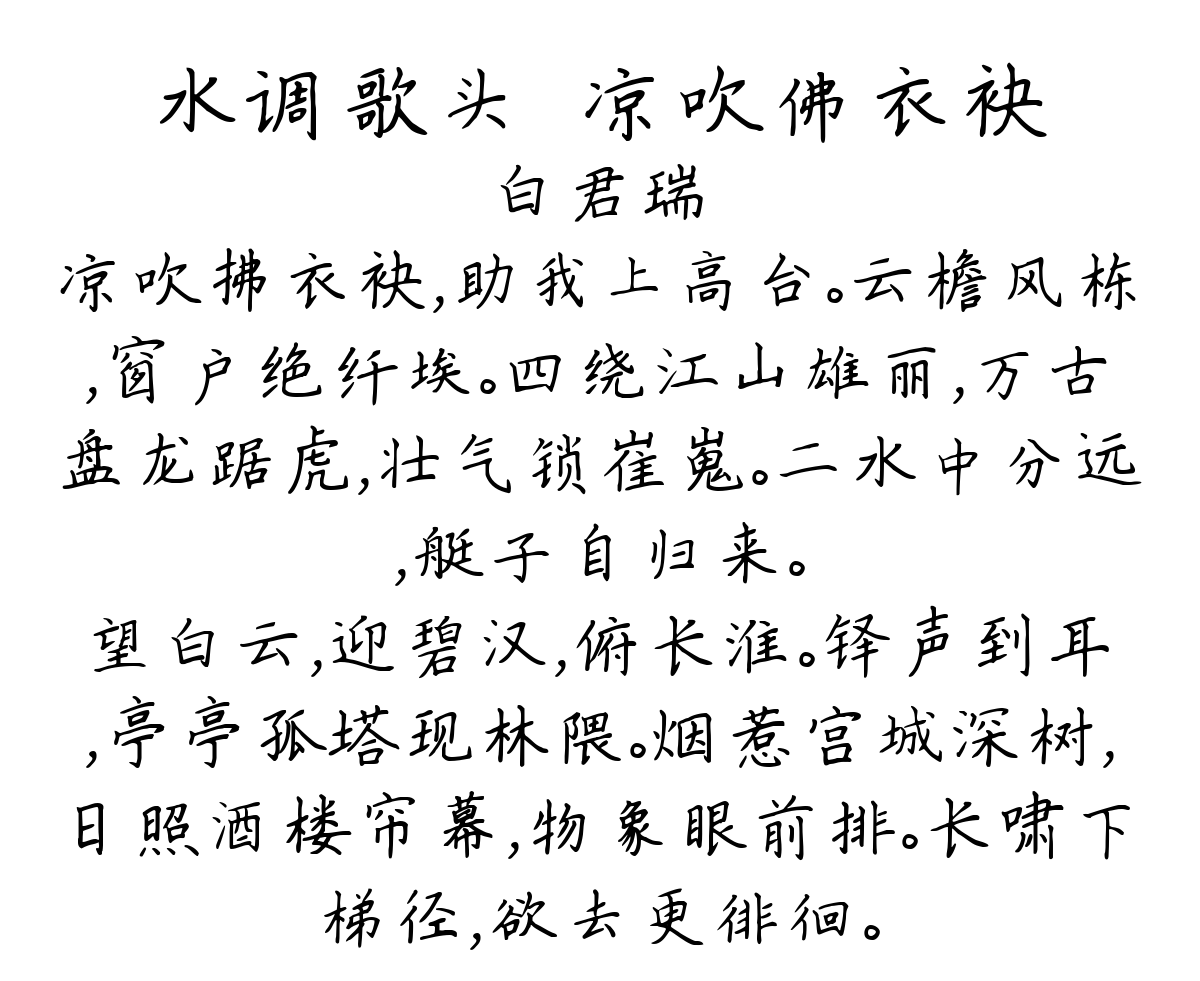 水调歌头 凉吹佛衣袂
白君瑞
凉吹拂衣袂,助我上高台。云檐风栋
,窗户绝纤埃。四绕江山雄丽,万古
盘龙踞虎,壮气锁崔嵬。二水中分远
,艇子自归来。
望白云,迎碧汉,俯长淮。铎声到耳
,亭亭孤塔现林隈。烟惹宫城深树,
日照酒楼帘幕,物象眼前排。长啸下
梯径,欲去更徘徊。